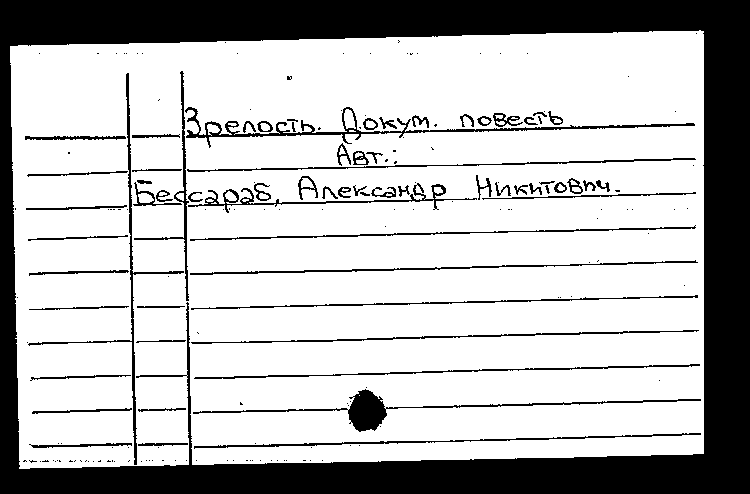 Зрелость. Докум. повесть
Авт.:
Бессараб, Александр Никитович.